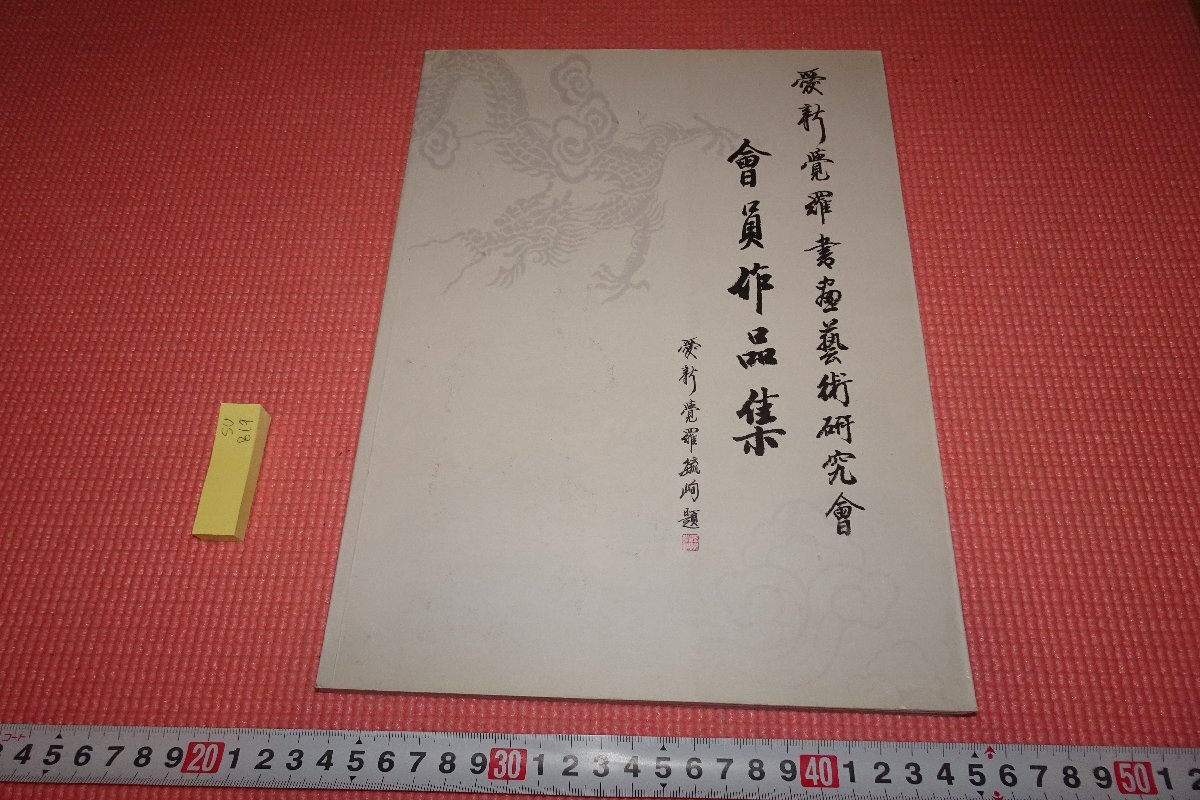 愛新覺羅書畫藝術研究會
會員作品集
愛新覺羅毓峋題
618
SU
コート
4 5 6 7 8 9 20 1 2 3 4 5 6 7 8 9 30 1 2 3 4 5 6 7 8 9 40 1 2 3 4 5 6 7 8 9 50 1 2